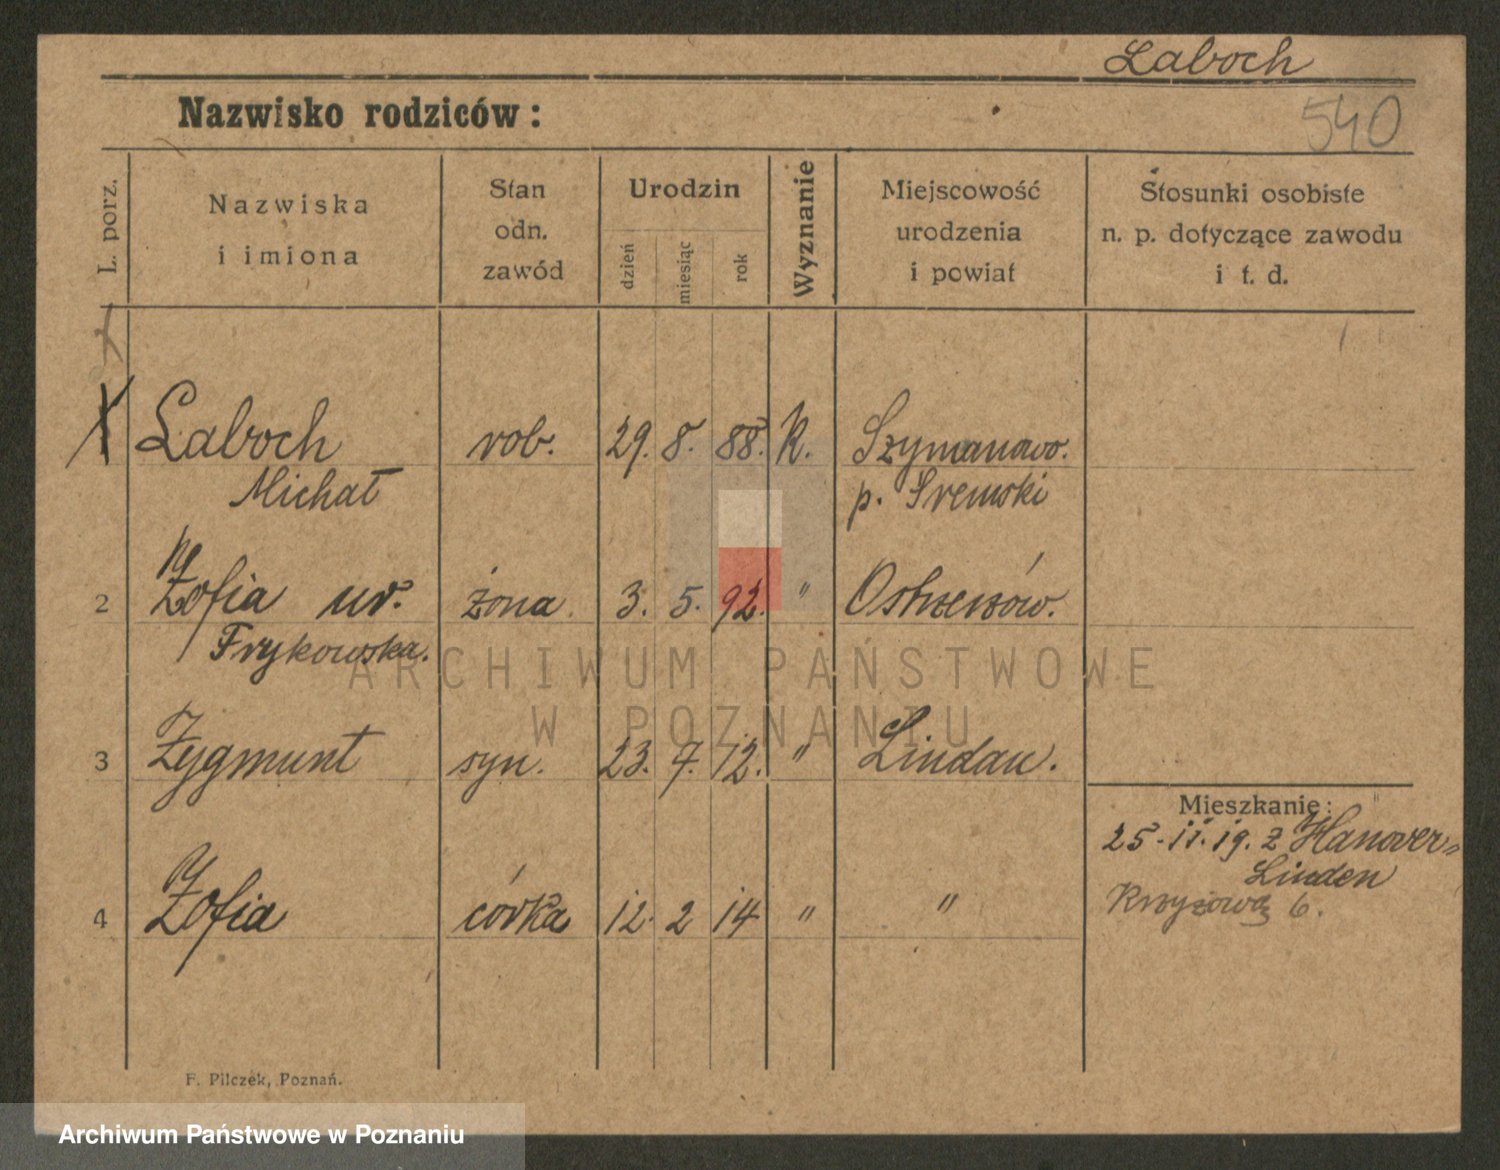 Laboch
Nazwisko rodziców:
540
L. porz.
Nazwiska
i imiona
Stan
odn.
zawód
Urodzin
dzień
miesiąc
rok
Wyznanie
Miejscowość
urodzenia
i powiat
Stosunki osobiste
n. p. dotyczące zawodu
i t. d.
Laboch rob. 29. 8. 88. K. Szymanowo.
Michał p. Sremski
2 Zofia ur. żona 3. 5. 92. " Ostrzeszów.
Frykowska.
3 Zygmunt syn. 23. 7. 12. " Lindau.
Mieszkanie:
25. 11. 19. z Hanover-
Linden
Krzyżowa 6.
4 Zofia córka 12. 2 14 " "
F. Pilczek, Poznań.
ARCHIWUM PAŃSTWOWE
W POZNANIU
Archiwum Państwowe w Poznaniu